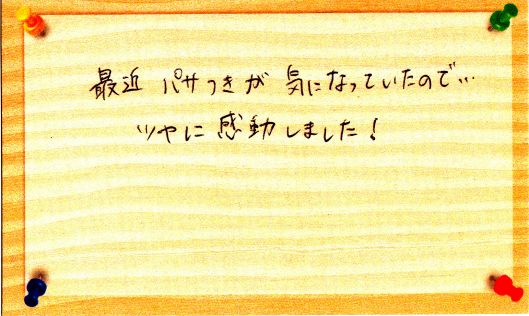 最近 パサつきが 気になっていたので…
ツヤに 感動しました！